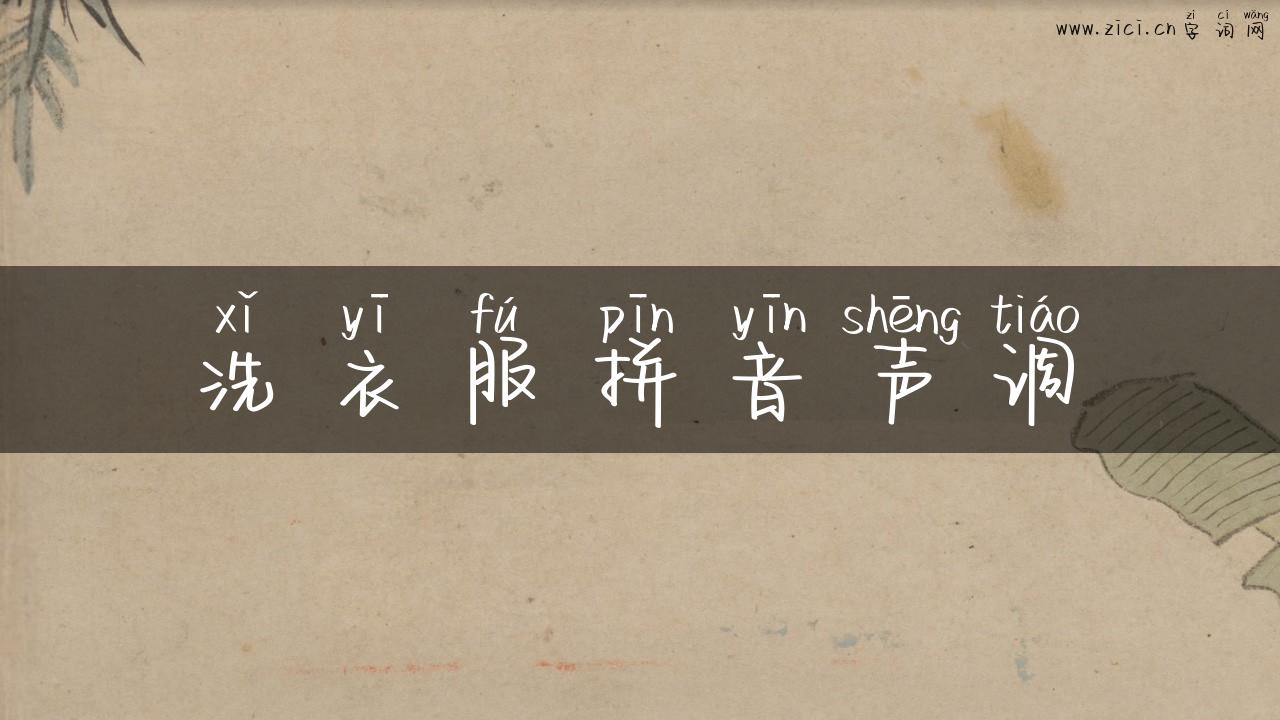 zì cí wǎng
www.zici.cn 字词网
xǐ yī fú pīn yīn shēng tiáo
洗衣服拼音声调